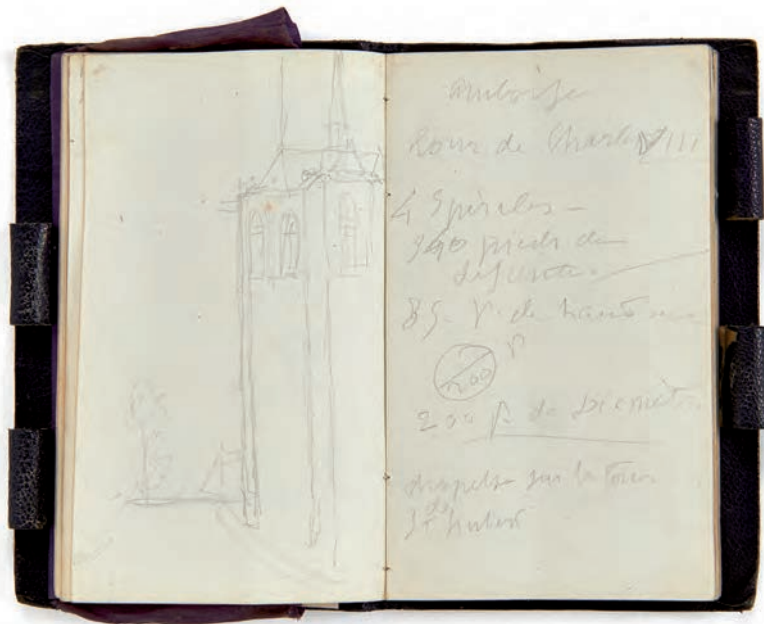 Amboise
tour de Charles VIII
4 Spirales –
940 pieds de
85 – p. de hauteur
p
200
200 p. de Diamètre
chapelle sur la tour
St hubert